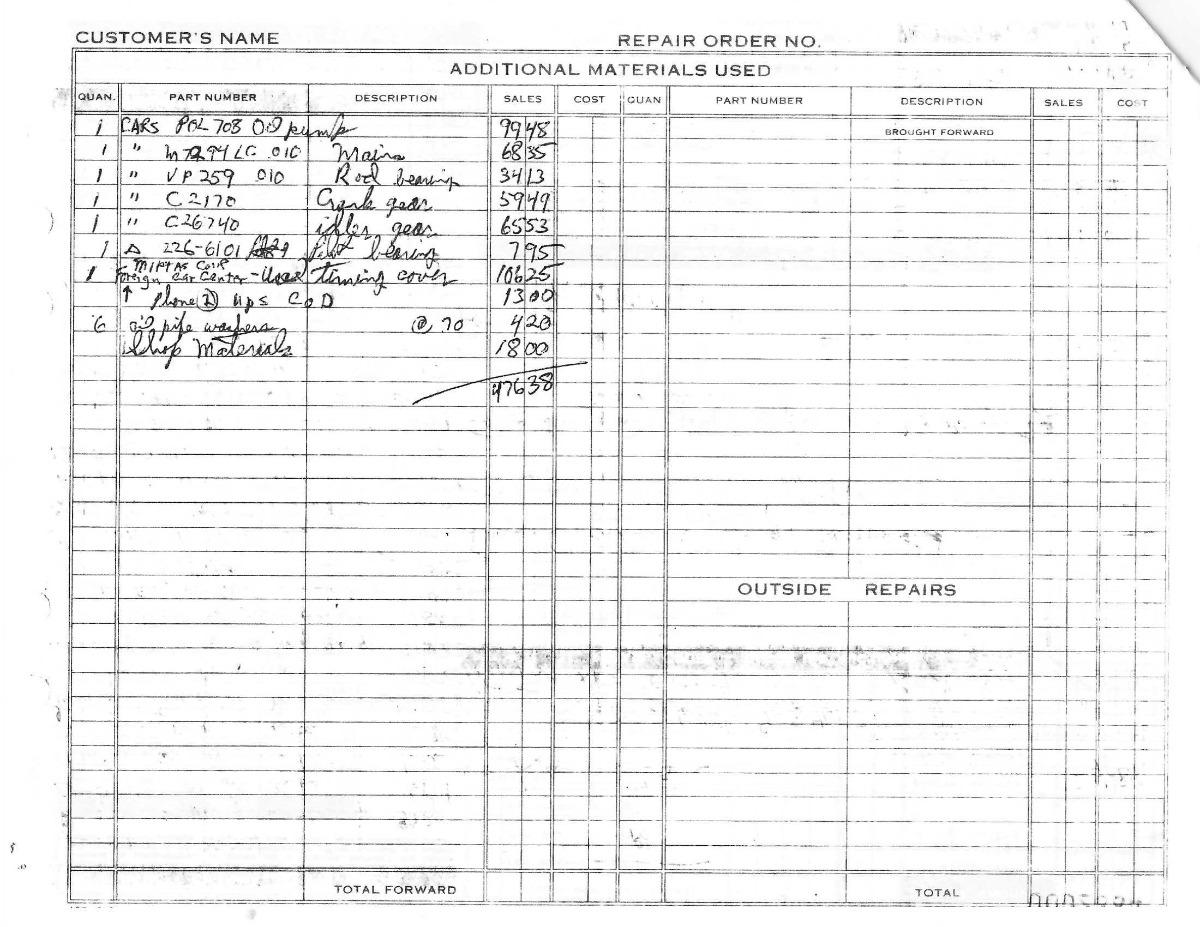 CUSTOMER'S NAME REPAIR ORDER NO.
ADDITIONAL MATERIALS USED
QUAN. PART NUMBER DESCRIPTION SALES COST QUAN PART NUMBER DESCRIPTION SALES COST
1 CARS POL 708 Oil pump 99 48 BROUGHT FORWARD
1 " 010 Mains 68 35
1 " VP 259 010 Rod bearing 34 13
1 " C 2170 Crank gear 59 49
1 " C26740 idler gear 65 53
1 226-6101 Pilot bearing 7 95
1 Foreign Car Center - Used timing cover 106 25
↑ Phone UPS COD 13 00
6 oil pipe washers @ 70 4 20
Shop Materials 18 00
476 38
OUTSIDE REPAIRS
TOTAL FORWARD TOTAL